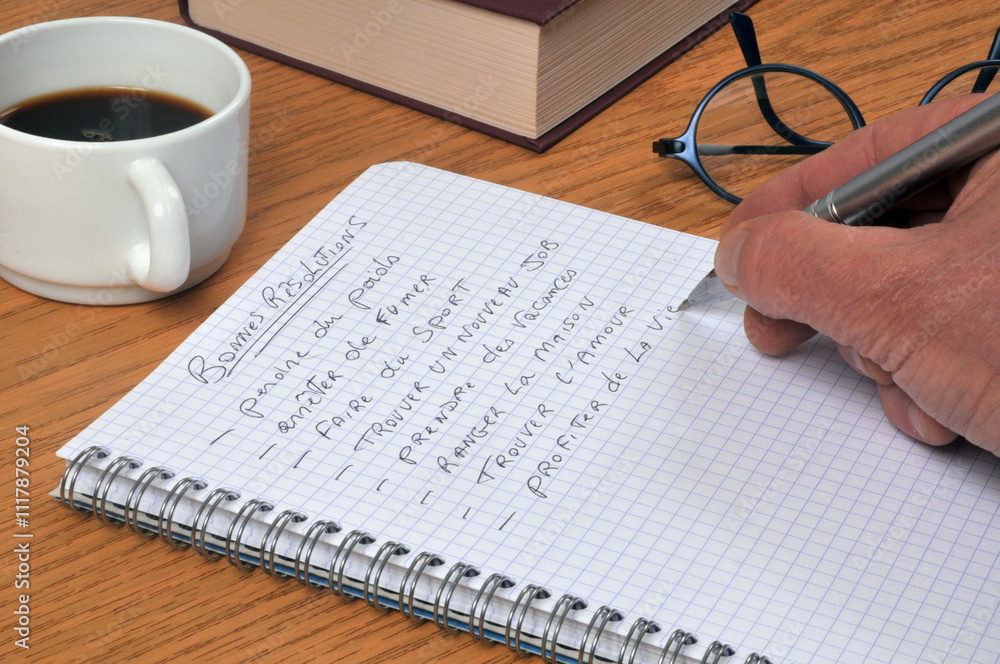 BONNES RÉSOLUTIONS
- perdre du poids
- arrêter de FUMER
- FAIRE du SPORT
- TROUVER UN NOUVEAU JOB
- PRENDRE des VACANCES
- RANGER LA MAISON
- TROUVER L'AMOUR
- PROFITER de LA VIE
Adobe Stock | #1117879204